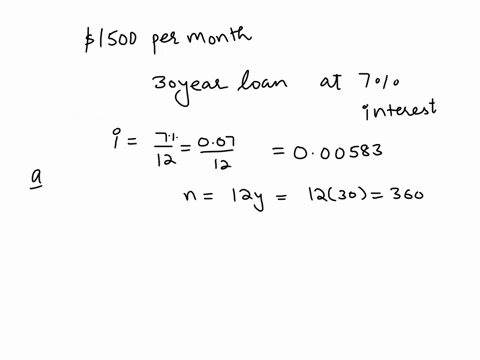 $1500 per month
30year loan at 7% interest
i = 7%/12 = 0.07/12 = 0.00583
a
n = 12y = 12(30) = 360